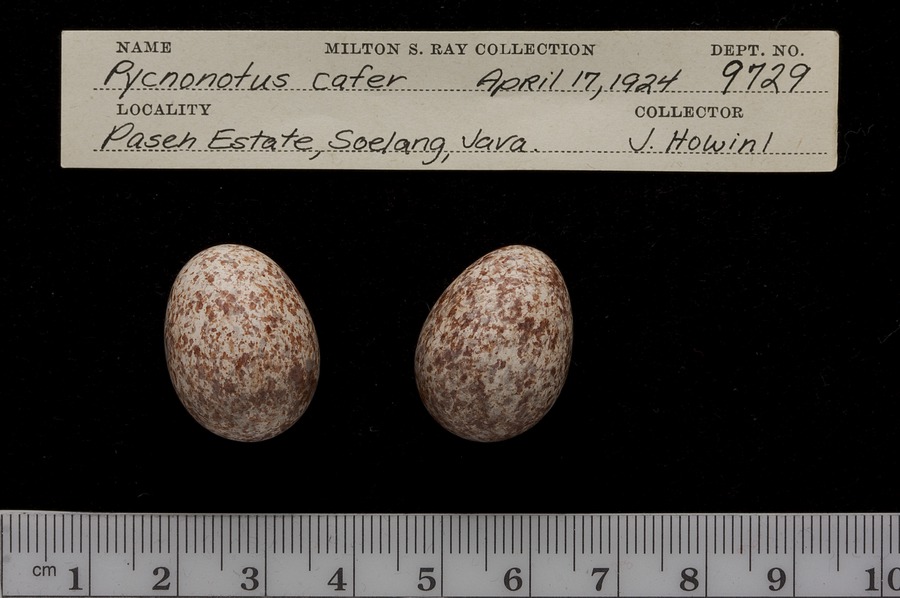 NAME MILTON S. RAY COLLECTION DEPT. NO.
Pycnonotus cafer April 17, 1924 9729
LOCALITY COLLECTOR
Paseh Estate, Soelang, Java. J. Howinl
cm 1 2 3 4 5 6 7 8 9 10